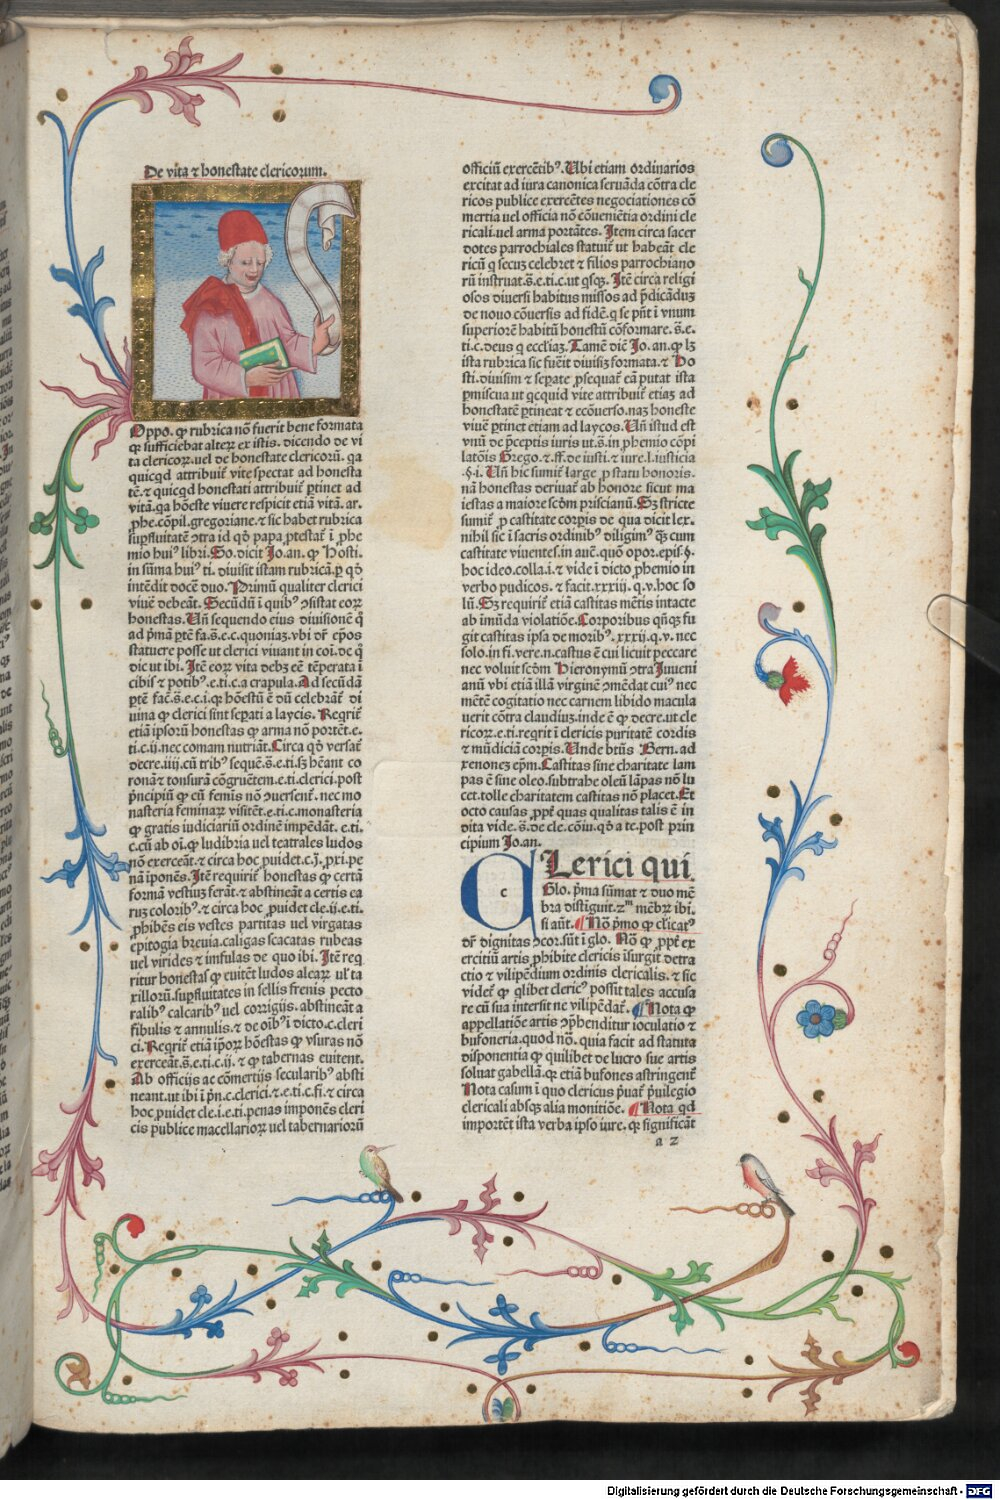 De vita ⁊ honestate clericorum.
Oppo. ꝙ rubrica nō fuerit bene formata
qꝛ sufficiebat alteꝝ ex istis. dicendo de vi
ta clericoꝝ. vel de honestate clericorū. qa
quicqd attribuit᷑ vite spectat ad honesta
tē. ⁊ quicqd honestati attribuit᷑ ꝑtinet ad
vitā. qa hōeste vivere respicit etiā vitā. ar.
ꝓhe. cōpil. gregoriane. ⁊ sic habet rubrica
suꝑfluitatē ꝯtra id qd̓ papa ꝓtestat᷑ ī ꝓhe
mio huiꝰ libri. So. dicit Jo. an. ꝙ Hosti.
in sūma huiꝰ ti. divisit istam rubricā. ꝑ qd̓
intēdit docē duo. Primū qualiter clerici
vivē debeāt. Secūdū ī quibꝰ ꝯsistat eoꝝ
honestas. Uñ sequendo eius divisionē ꝙ
ad pͥmā ꝑtē fa. s̄. e. c. quoniaꝫ. vbi dr̄ eꝑos
statuere posse ut clerici vivant in coī. de q̄
dic ut ibi. Itē eoꝝ vita debꝫ eē tēperata ī
cibis ⁊ potibꝰ. e. ti. c. a crapula. Ad secūdā
ꝑtē fac̄. s̄. e. c. i. qꝛ hōestū ē dū celebrāt᷑ di
vina ꝙ clerici sint seꝑati a laycis. Reqrit᷑
etiā ipsorū honestas ꝙ arma nō portēt. e.
ti. c. ij. nec comam nutriāt. Circa qd̓ versat᷑
decre. iiij. cū tribꝰ sequē. s̄. e. ti. sꝫ hēant co
ronā ⁊ tonsurā cōgruētem. e. ti. clerici. post
pͥncipiū ꝙ cū femīs nō ꝯversent᷑. nec mo
nasteria feminaꝝ visitēt. e. ti. c. monasteria
ꝙ gratis iudiciariū ordinē impēdāt. e. ti.
c. cū ab oī. ꝙ ludibria vel teatrales ludos
nō exerceāt. ⁊ circa hoc ꝓuidet. c. j. ꝓxi. pe
nā īponēs. Itē requirit᷑ honestas ꝙ certā
formā vestiuꝫ ferāt. ⁊ abstineāt a certis ea
ruꝫ coloribꝰ. ⁊ circa hoc ꝓuidet cle. ij. e. ti.
ꝓhibēs eis vestes partitas vel virgatas
epitogia brevia. caligas scacatas rubeas
vel virides ⁊ imfulas de quo ibi. Itē req
ritur honestas ꝙ evitēt ludos aleaꝝ ul̓ ta
xilloꝝ. suꝑfluitates in sellis frenis pecto
ralibꝰ calcaribꝰ vel corrigijs. abstineāt a
fibulis ⁊ annulis. ⁊ de oibꝰ ī dicto. c. cleri
ci. Reqrit᷑ etiā ipͦoꝝ hōestas ꝙ vsuras nō
exerceāt. s̄. e. ti. c. ij. ⁊ ꝙ tabernas evitent.
Ab officijs ac cōmertijs secularibꝰ absti
neant. ut ibi ī pͥn. c. clerici. ⁊ e. ti. c. fi. ⁊ circa
hoc ꝓuidet cle. i. e. ti. penas imponēs cleri
cis publice macellarioꝝ vel tabernariorū
officiū exercētibꝰ. Ubi etiam ordinarios
excitat ad iura canonica servāda cōtra cle
ricos publice exercētes negociationes cō
mertia vel officia nō cōveniētia ordini cle
ricali. vel arma portātes. Item circa sacer
dotes parrochiales statuit᷑ ut habeāt cle
ricū q secuꝫ celebret ⁊ filios parrochiano
rū instruat. s̄. e. ti. c. ut qsqꝫ. Itē circa religi
osos diversi habitus missos ad p̄dicāduꝫ
de novo cōversis ad fidē. q se pn̄t ī vnum
superiorē habitū honestū cōformare. s̄. e.
ti. c. deus q ecclīaꝫ. Tamē dic̄ Jo. an. ꝙ lꝫ
ista rubrica sic fuerit divisiꝫ formata. ⁊ Ho
sti. divisim ⁊ seꝑate ꝓsequat᷑ eā putat ista
ꝑmiscua ut qcquid vite attribuit᷑ etiaꝫ ad
honestatē ꝑtineat ⁊ ecōverso. naꝫ honeste
vivē ꝑtinet etiam ad laycos. Uñ istud est
vnū de p̄ceptis iuris ut. s̄. in ꝓhemio cōpi
latōis Grego. ⁊. ff. de iusti. ⁊ iure. l. iusticia
.§. i. Uñ hic sumit᷑ large ꝓ statu honoris.
nā honestas derivat᷑ ab honore sicut ma
iestas a maiore scd̓m priscianū. Sꝫ stricte
sumit᷑ ꝓ castitate corꝑis de qua dicit lex.
nihil sic ī sacris ordinibꝰ diligimꝰ qꝫ cum
castitate viventes. in auē. quō opor. epīs. §.
hoc ideo. colla. i. ⁊ vide ī dicto ꝓhemio in
verbo pudicos. ⁊ facit. xxxiij. q. v. hoc so
lū. Sꝫ requirit᷑ etiā castitas mētis intacte
ab imūda violatiōe. Corporibus qn̄qꝫ fu
git castitas ipsa de moribꝰ. xxxij. q. v. nec
solo. in fi. vere. n. castus ē cui licuit peccare
nec voluit scd̓m Hieronymū ꝯtra Juveni
anū vbi etiā illā virginē ꝯmēdat cuiꝰ nec
mētē cogitatio nec carnem libido macula
verit cōtra claudiuꝫ. inde ē ꝙ decre. ut cle
ricoꝝ. e. ti. reqrit ī clericis puritatē cordis
⁊ mūdiciā corꝑis. Unde btūs Bern. ad
xenoneꝫ eꝑm. Castitas sine charitate lam
pas ē sine oleo. subtrahe oleū lāpas nō lu
cet. tolle charitatem castitas nō placet. Et
octo causas ꝓpt᷑ quas qualitas talis ē in
dita vide. s̄. de cle. cōiu. qd̓ a te. post prin
cipium Jo. an.
c
Lerici qui.
Glo. pͥma sūmat ⁊ duo mē
bra distīguit. 2ᵐ mēbꝝ ibi.
si aūt. Nō pͥmo ꝙ cl̓icatꝰ
dr̄ dignitas ꝯcor. sūt ī glo. Nō ꝙ ꝓpt᷑ ex
ercitiū artis ꝓhibite clericis īsurgit᷑ detra
ctio ⁊ vilipēdium ordinis clericalis. ⁊ sic
videt᷑ ꝙ qlibet clericꝰ possit tales accusa
re cū sua intersit ne vilipēdat᷑. Nota ꝙ
appellatiōe artis ꝯp̄henditur ioculatio ⁊
bufoneria. quod nō. quia facit ad statuta
disponentia ꝙ quilibet de lucro sue artis
solvat gabellā. qꝛ etiā bufones astringent᷑
Nota casum ī quo clericus pͥuat᷑ pͥuilegio
clericali absqꝫ alia monitiōe. Nota qd
importēt ista verba ipso iure. qꝛ significāt
a 2
Digitalisierung gefördert durch die Deutsche Forschungsgemeinschaft - DFG